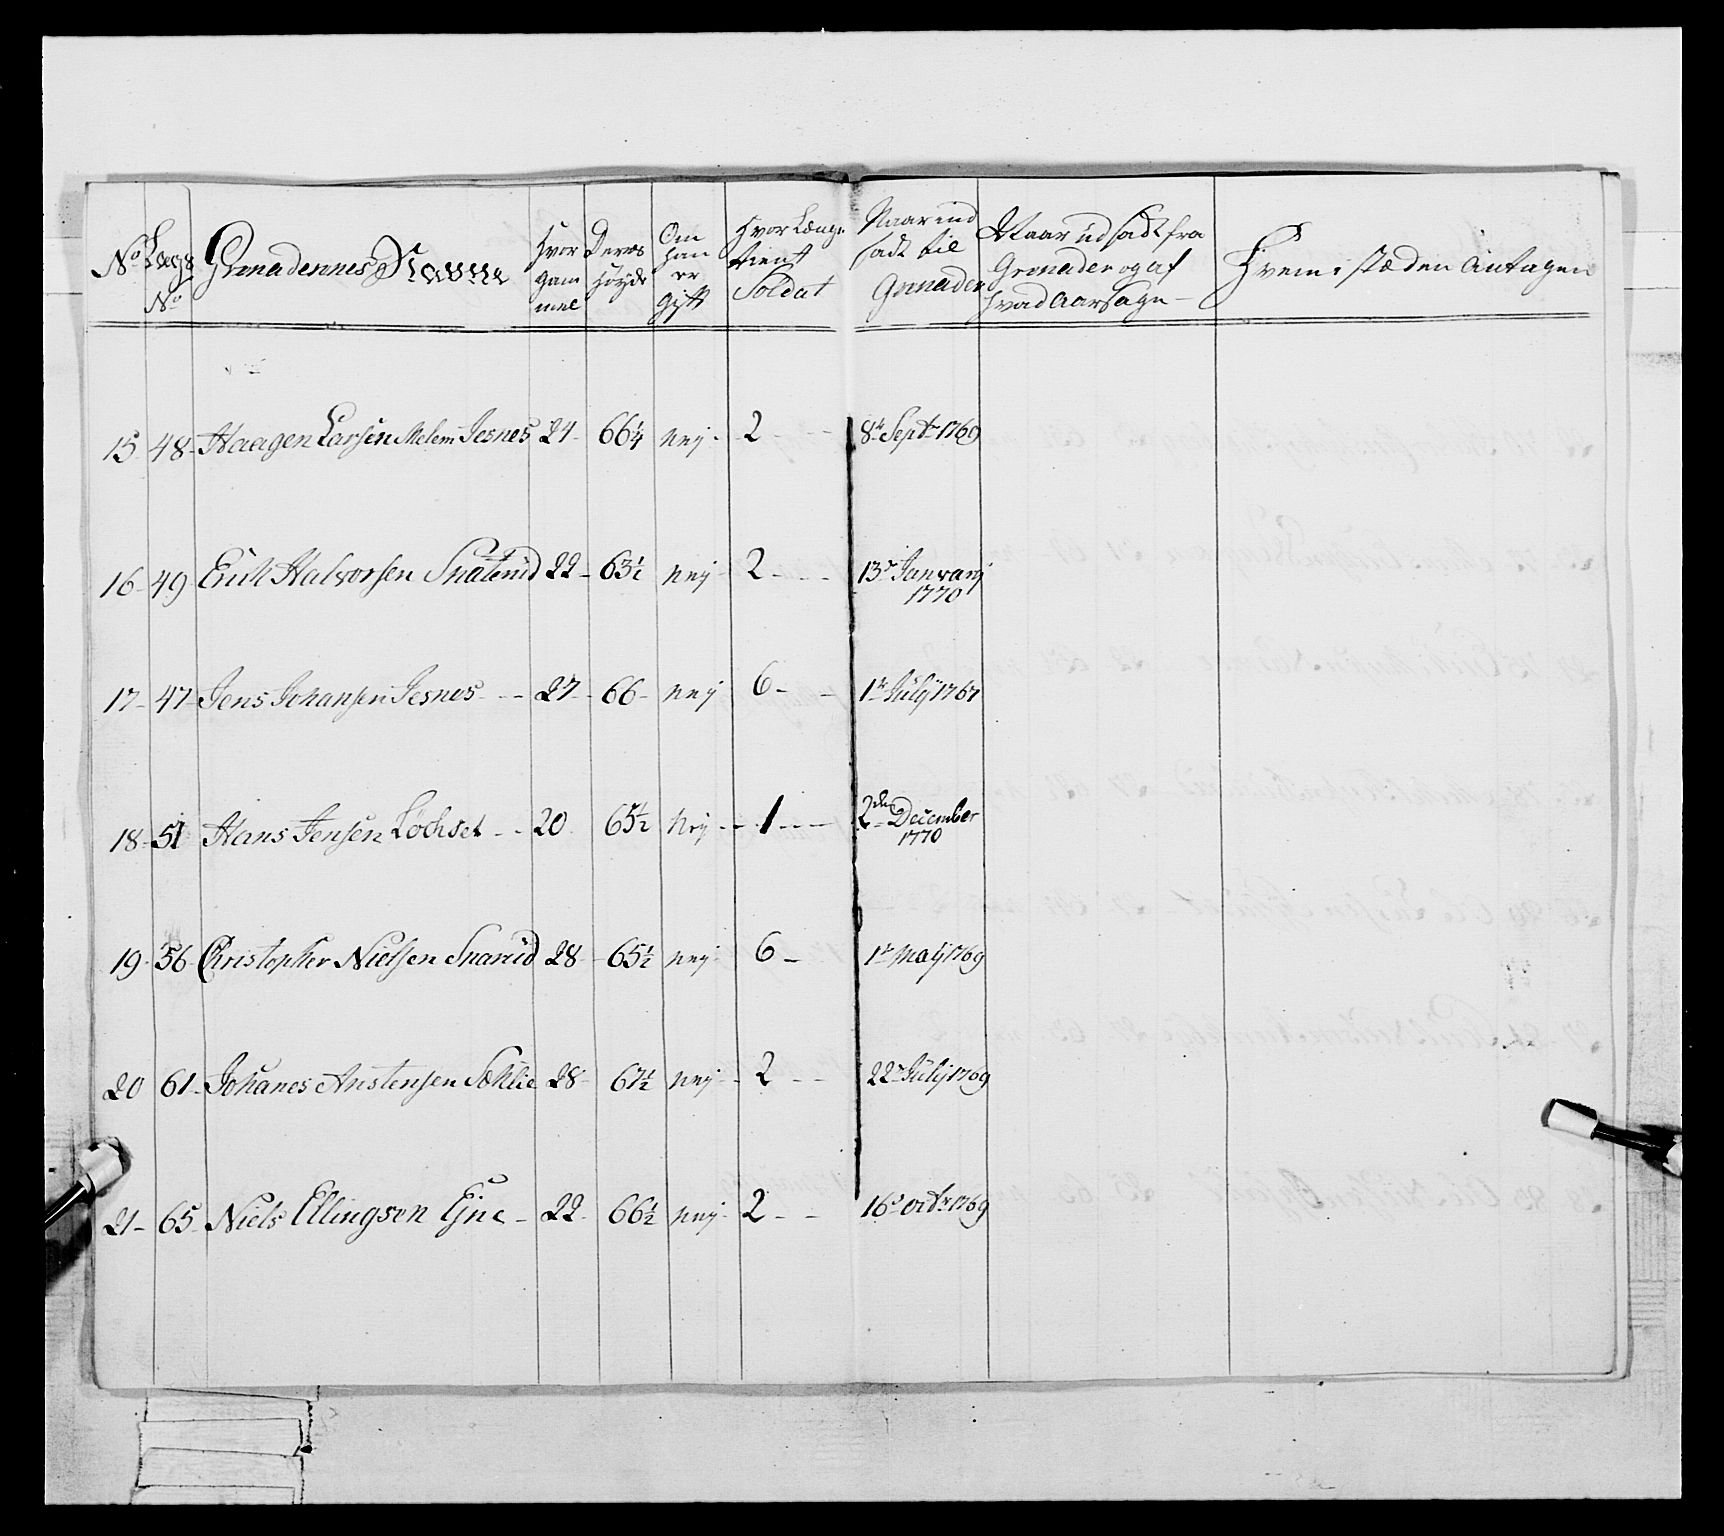 No Lægs No Grenadeernes Navne Hvor gammel Deres Høyde Om han er gift Hvor Længe tient Soldat Naar indsadt til Grenader Naar udsadt fra Grenader og af hvad Aarsage Hvem i stæden Antagen
15 48 Haagen Larsen Melem Jesnes 24 66¼ nej 2 8de Septr 1769
16 49 Erick Halvorsen Snaterud 22 63½ nej 2 13de Janvary 1770
17 47 Jens Johansen Jesnes 27 66 nej 6 1te July 1767
18 51 Hans Jensen Løchset 20 65½ Nej 1 2den December 1770
19 56 Christopher Nielsen Snarud 28 65½ nej 6 1te May 1769
20 61 Johanes Anstensen Sæhlie 28 67½ nej 2 22de July 1769
21 65 Niels Ellingsen Ejne 22 66½ nej 2 16de octr 1769